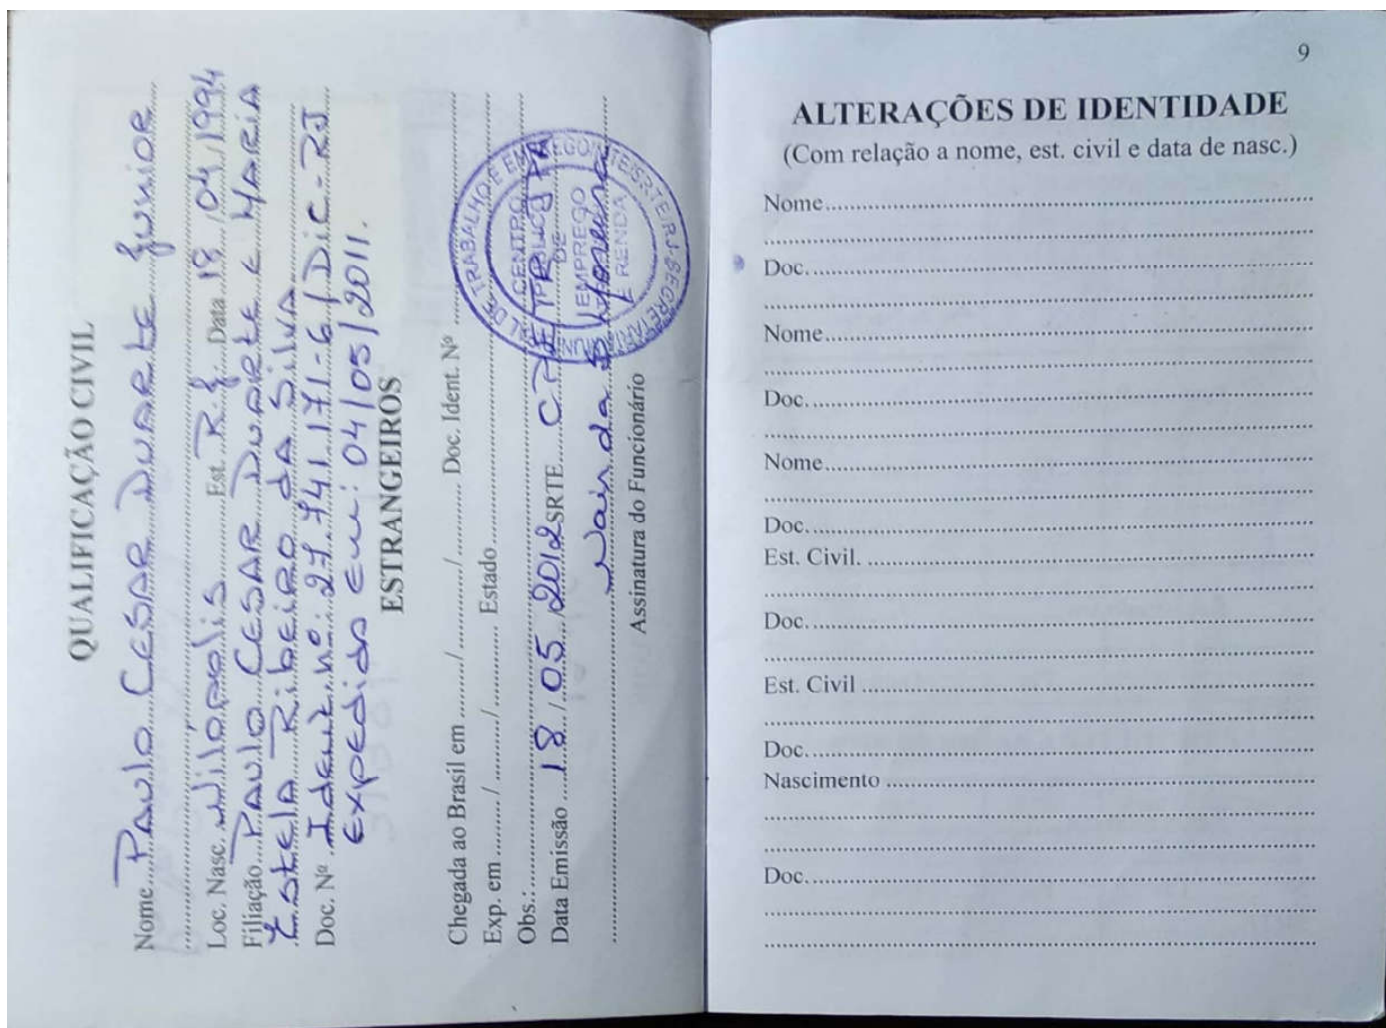 QUALIFICAÇÃO CIVIL
Nome Paulo Cesar Duarte Junior
Loc. Nasc. Nilópolis Est. RJ Data 18/04/1994
Filiação Paulo Cesar Duarte e Maria
Estela Ribeiro da Silva
Doc. Nº Ident. nº: 27.741.171-6/Dic-RJ
Expedido em: 04/05/2011.
ESTRANGEIROS
Chegada ao Brasil em ........../........../.......... Doc. Ident. Nº
Exp. em ........../........../.......... Estado
Obs.:
Data Emissão 18/05/2012 SRTE
Assinatura do Funcionário
CENTRO
PÚBLICO
DE
EMPREGO
E RENDA
9
ALTERAÇÕES DE IDENTIDADE
(Com relação a nome, est. civil e data de nasc.)
Nome
Doc.
Nome
Doc.
Nome
Doc.
Est. Civil.
Doc.
Est. Civil
Doc.
Nascimento
Doc.